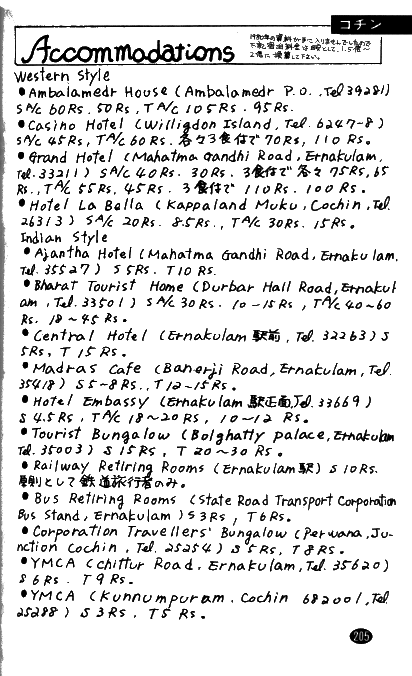 コチン
Accommodations
Western Style
●Ambalamedr House (Ambalamedr P.O., Tel 39281)
S A/c 60Rs. 50Rs, T A/c 105Rs. 95Rs.
●Casino Hotel (Willigdon Island, Tel. 6247-8)
S A/c 45Rs, T A/c 60Rs. 各々3食付で 70Rs, 110Rs.
●Grand Hotel (Mahatma Gandhi Road, Ernakulam,
Tel. 33211) S A/c 40Rs. 30Rs. 3食付で 各々 75Rs, 65
Rs., T A/c 55Rs, 45Rs. 3食付で 110Rs. 100Rs.
●Hotel La Bella (Kappaland Muku, Cochin, Tel.
26313) S A/c 20Rs. 8.5Rs., T A/c 30Rs. 15Rs.
Indian Style
●Ajantha Hotel (Mahatma Gandhi Road, Ernakulam,
Tel. 35527) S 5Rs. T 10 Rs.
●Bharat Tourist Home (Durbar Hall Road, Ernakul
am, Tel. 33501) S A/c 30Rs. 10-15Rs, T A/c 40~60
Rs. 18~45Rs.
●Central Hotel (Ernakulam 駅前, Tel. 32263) S
5Rs, T 15Rs.
●Madras Cafe (Banerji Road, Ernakulam, Tel.
35418) S 5~8Rs., T 12~15Rs.
●Hotel Embassy (Ernakulam 駅正面, Tel. 33669)
S 4.5Rs, T A/c 18~20Rs, 10~12 Rs.
●Tourist Bungalow (Bolghatty palace, Ernakulam
Tel. 35003) S 15Rs, T 20~30Rs.
●Railway Retiring Rooms (Ernakulam 駅) S 10Rs.
原則として鉄道旅行者のみ.
●Bus Retiring Rooms (State Road Transport Corporation
Bus Stand, Ernakulam) S 3Rs, T 6Rs.
●Corporation Travellers' Bungalow (Perwana, Ju-
nction Cochin, Tel. 25254) S 5Rs, T 8Rs.
●YMCA (Chittur Road, Ernakulam, Tel. 35620)
S 6Rs. T 9Rs.
●YMCA (Kunnumpuram, Cochin 682001, Tel.
25288) S 3Rs, T 5 Rs.
205